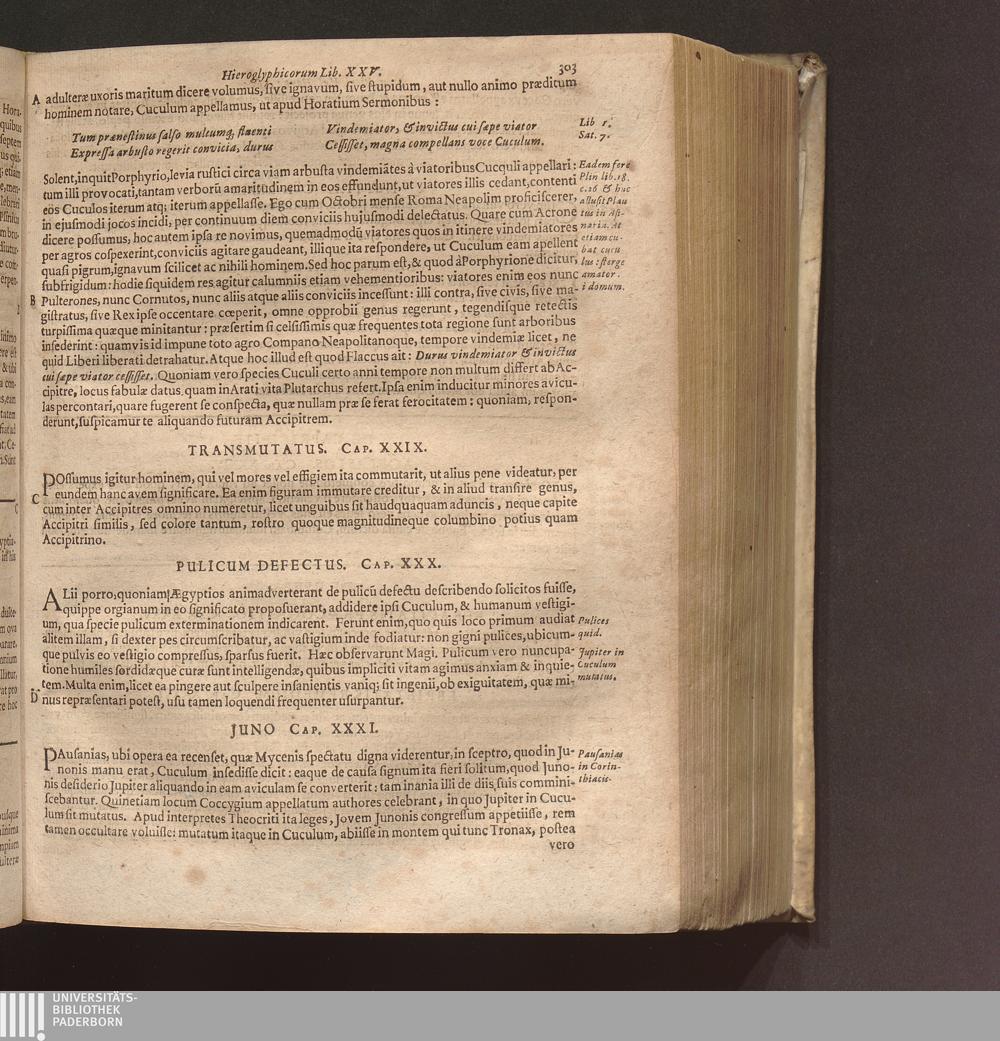 Hieroglyphicorum Lib. XXV. 303
A adulteræ uxoris maritum dicere volumus, ſive ignavum, ſive ſtupidum, aut nullo animo præditum
hominem notare, Cuculum appellamus, ut apud Horatium Sermonibus :
Tum præneſtinus ſalſo multumq; fluenti
Expreſſa arbuſto regerit convicia, durus
Vindemiator, & invictus cui ſæpe viator
Ceſſiſſet, magna compellans voce Cuculum.
Lib 1.
Sat. 7.
Solent, inquit Porphyrio, levia ruſtici circa viam arbuſta vindemiātes à viatoribus Cucquli appellari :
tum illi provocati, tantam verborū amaritudinem in eos effundunt, ut viatores illis cedant, contenti
eos Cuculos iterum atq; iterum appellaſſe. Ego cum Octobri menſe Roma Neapolim proficiſcerer,
in ejuſmodi jocos incidi, per continuum diem conviciis hujuſmodi delectatus. Quare cum Acrone
dicere poſſumus, hoc autem ipſa re novimus, quemadmodū viatores quos in itinere vindemiatores
per agros coſpexerint, conviciis agitare gaudeant, illique ita reſpondere, ut Cuculum eam apellent
quaſi pigrum, ignavum ſcilicet ac nihili hominem. Sed hoc parum eſt, & quod à Porphyrione dicitur,
ſubfrigidum: hodie ſiquidem res agitur calumniis etiam vehementioribus: viatores enim eos nunc
B Pulterones, nunc Cornutos, nunc aliis atque aliis conviciis inceſſunt: illi contra, ſive civis, ſive ma-
giſtratus, ſive Rex ipſe occentare cœperit, omne opprobii genus regerunt, tegendiſque retectis
turpiſſima quæque minitantur : præſertim ſi celſiſſimis quæ frequentes tota regione ſunt arboribus
inſederint : quamvis id impune toto agro Compano Neapolitanoque, tempore vindemiæ licet, ne
quid Liberi liberati detrahatur. Atque hoc illud eſt quod Flaccus ait : Durus vindemiator & invictus
cui ſæpe viator ceſſiſſet. Quoniam vero ſpecies Cuculi certo anni tempore non multum differt ab Ac-
cipitre, locus fabulæ datus, quam in Arati vita Plutarchus refert. Ipſa enim inducitur minores avicu-
las percontari, quare fugerent ſe conſpecta, quæ nullam præ ſe ferat ferocitatem : quoniam, reſpon-
derunt, ſuſpicamur te aliquando futuram Accipitrem.
Eadem fere
Plin lib. 18.
c. 26 & huc
alluſit Plau
tus in Aſi-
naria. At
etiam cu-
bat cucu
lus : ſurge
amator.
i domum.
TRANSMUTATUS. CAP. XXIX.
POſſumus igitur hominem, qui vel mores vel effigiem ita commutarit, ut alius pene videatur, per
C eundem hanc avem ſignificare. Ea enim figuram immutare creditur, & in aliud tranſire genus,
cum inter Accipitres omnino numeretur, licet unguibus ſit haudquaquam aduncis, neque capite
Accipitri ſimilis, ſed colore tantum, roſtro quoque magnitudineque columbino potius quam
Accipitrino.
PULICUM DEFECTUS. CAP. XXX.
ALii porro, quoniam Ægyptios animadverterant de pulicū defectu deſcribendo ſolicitos fuiſſe,
quippe orgianum in eo ſignificato propoſuerant, addidere ipſi Cuculum, & humanum veſtigi-
um, qua ſpecie pulicum exterminationem indicarent. Ferunt enim, quo quis loco primum audiat
alitem illam, ſi dexter pes circumſcribatur, ac vaſtigium inde fodiatur: non gigni pulices, ubicum-
que pulvis eo veſtigio compreſſus, ſparſus fuerit. Hæc obſervarunt Magi. Pulicum vero nuncupa-
tione humiles ſordidæque curæ ſunt intelligendæ, quibus impliciti vitam agimus anxiam & inquie-
tem. Multa enim, licet ea pingere aut ſculpere inſanientis vaniq; ſit ingenii, ob exiguitatem, quæ mi-
D nus repræſentari poteſt, uſu tamen loquendi frequenter uſurpantur.
Pulices
quid.
Jupiter in
Cuculum
mutatus.
JUNO CAP. XXXI.
PAuſanias, ubi opera ea recenſet, quæ Mycenis ſpectatu digna viderentur, in ſceptro, quod in Ju-
nonis manu erat, Cuculum inſediſſe dicit : eaque de cauſa ſignum ita fieri ſolitum, quod Juno-
nis deſiderio Jupiter aliquando in eam aviculam ſe converterit : tam inania illi de diis ſuis commini-
ſcebantur. Quinetiam locum Coccygium appellatum authores celebrant, in quo Jupiter in Cucu-
lum ſit mutatus. Apud interpretes Theocriti ita leges, Jovem Junonis congreſſum appetiiſſe, rem
tamen occultare voluiſſe: mutatum itaque in Cuculum, abiiſſe in montem qui tunc Tronax, poſtea
vero
Pauſanias
in Corin-
thiacis.
UNIVERSITÄTS-
BIBLIOTHEK
PADERBORN